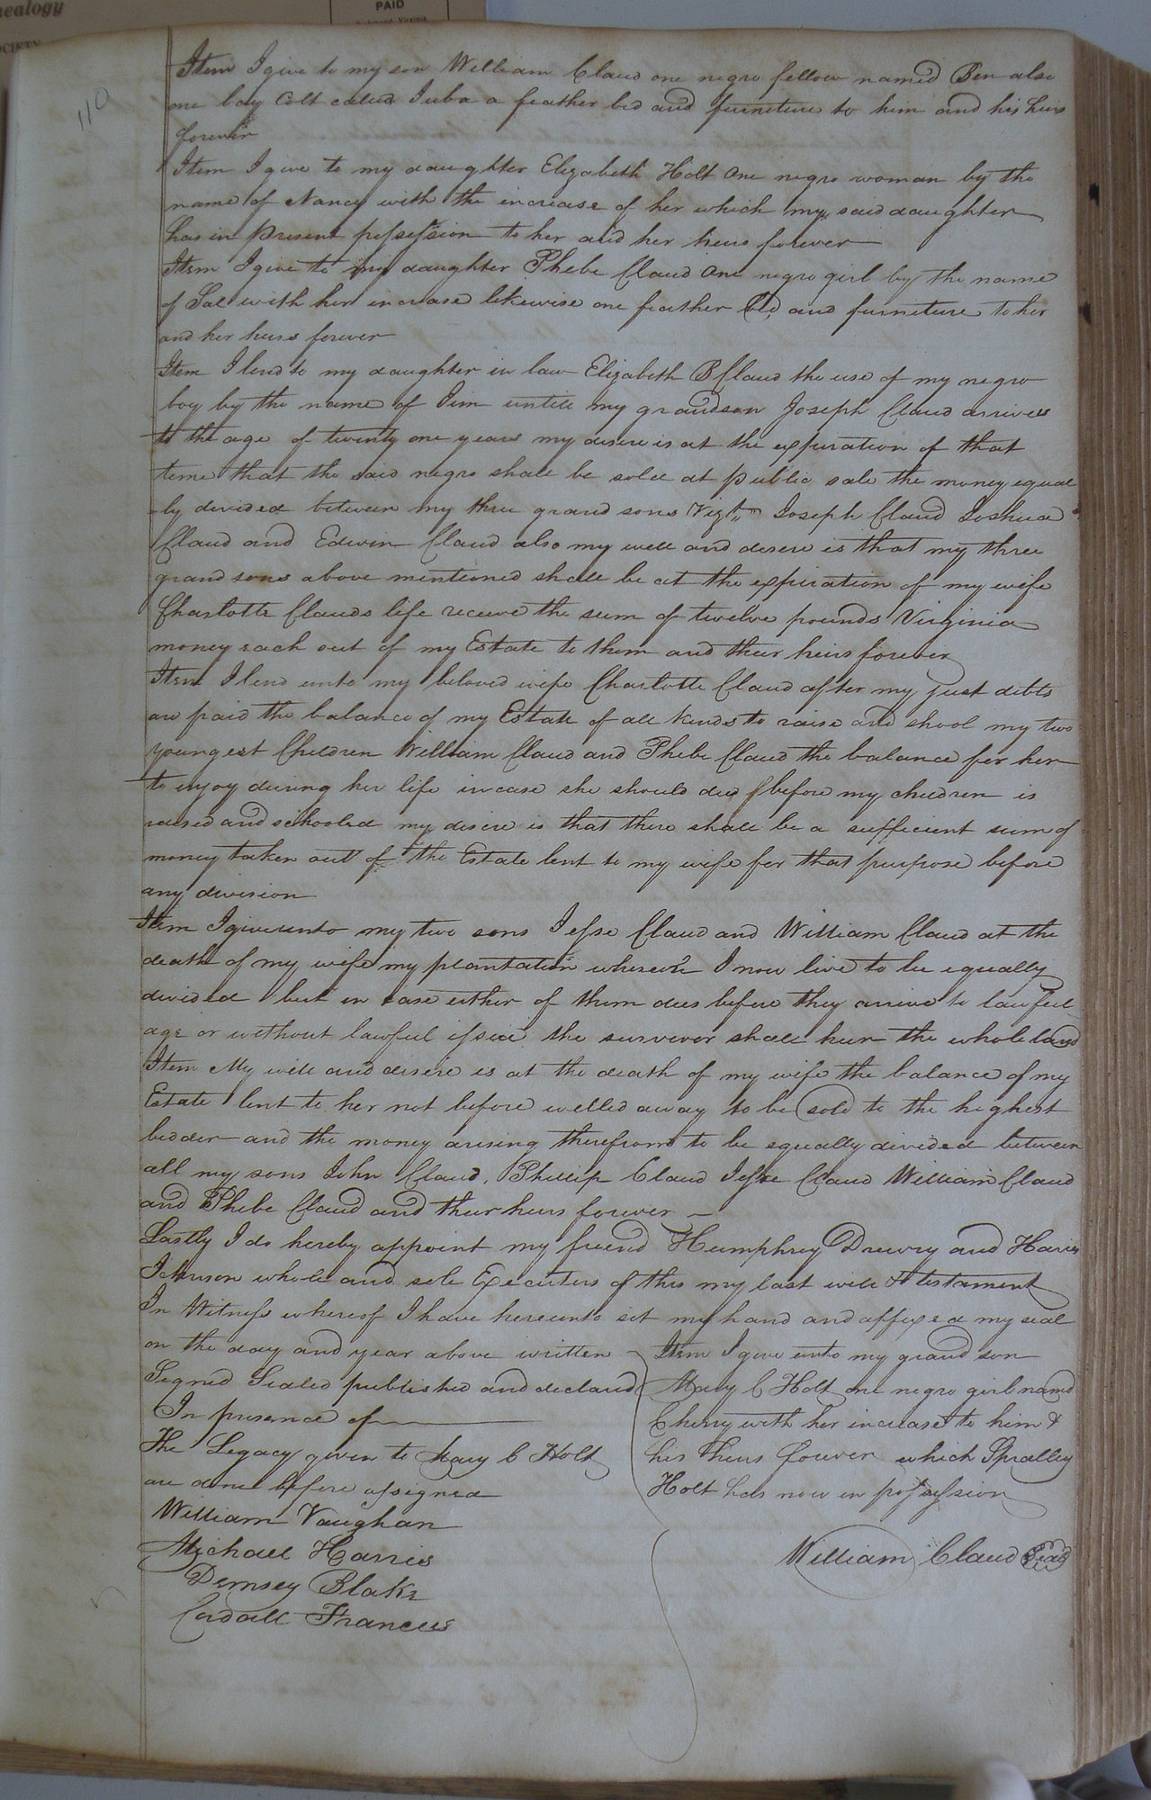 nealogy
OCIETY
PAID
110
Item I give to my son William Claud one negro fellow named Ben also
one bay Colt called Juba a feather bed and furniture to him and his heirs
forever
Item I give to my daughter Elizabeth Holt one negro woman by the
name of Nancy with the increase of her which my said daughter
has in present possession to her and her heirs forever
Item I give to my daughter Phebe Claud one negro girl by the name
of Sal with her increase likewise one feather bed and furniture to her
and her heirs forever
Item I lend to my daughter in law Elizabeth B Claud the use of my negro
boy by the name of Jim untill my grandson Joseph Claud arrives
to the age of twenty one years my desire is at the expiration of that
time that the said negro shall be sold at public sale the money equal
-ly divided between my three grand sons Vizt Joseph Claud Joshua
Claud and Edwin Claud also my will and desire is that my three
grand sons above mentioned shall be at the expiration of my wife
Charlotte Clauds life receive the sum of twelve pounds Virginia
money each out of my Estate to them and their heirs forever
Item I lend unto my beloved wife Charlotte Claud after my just debts
are paid the balance of my Estate of all kinds to raise and shool my two
youngest Children William Claud and Phebe Claud the balance for her
to enjoy during her life incase she should die before my children is
raised and schooled my desire is that there shall be a sufficient sum of
money taken out of the Estate lent to my wife for that purpose before
any division
Item I give unto my two sons Jesse Claud and William Claud at the
death of my wife my plantation whereon I now live to be equally
divided but in case either of them dies before they arrive to lawful
age or without lawful issue the survivor shall heir the whole land
Item My will and desire is at the death of my wife the balance of my
Estate lent to her not before willed away to be sold to the highest
bidder and the money arising therefrom to be equally divided between
all my sons John Claud, Phillip Claud Jesse Claud William Claud
and Phebe Claud and their heirs forever
Lastly I do hereby appoint my friend Humphrey Drewry and Harris
Johnson whole and sole Executors of this my last will & testament
In Witness whereof I have hereunto set my hand and affixed my seal
on the day and year above written
Signed Sealed published and declared
In presence of
The Legacy given to Mary C Holt
are done before assigned
William Vaughan
Michael Harris
Demsey Blake
Cordall Francis
Item I give unto my grand son
Mary C Holt one negro girl named
Cherry with her increase to him &
his heirs forever which Spratley
Holt has now in possession
William Claud Seal